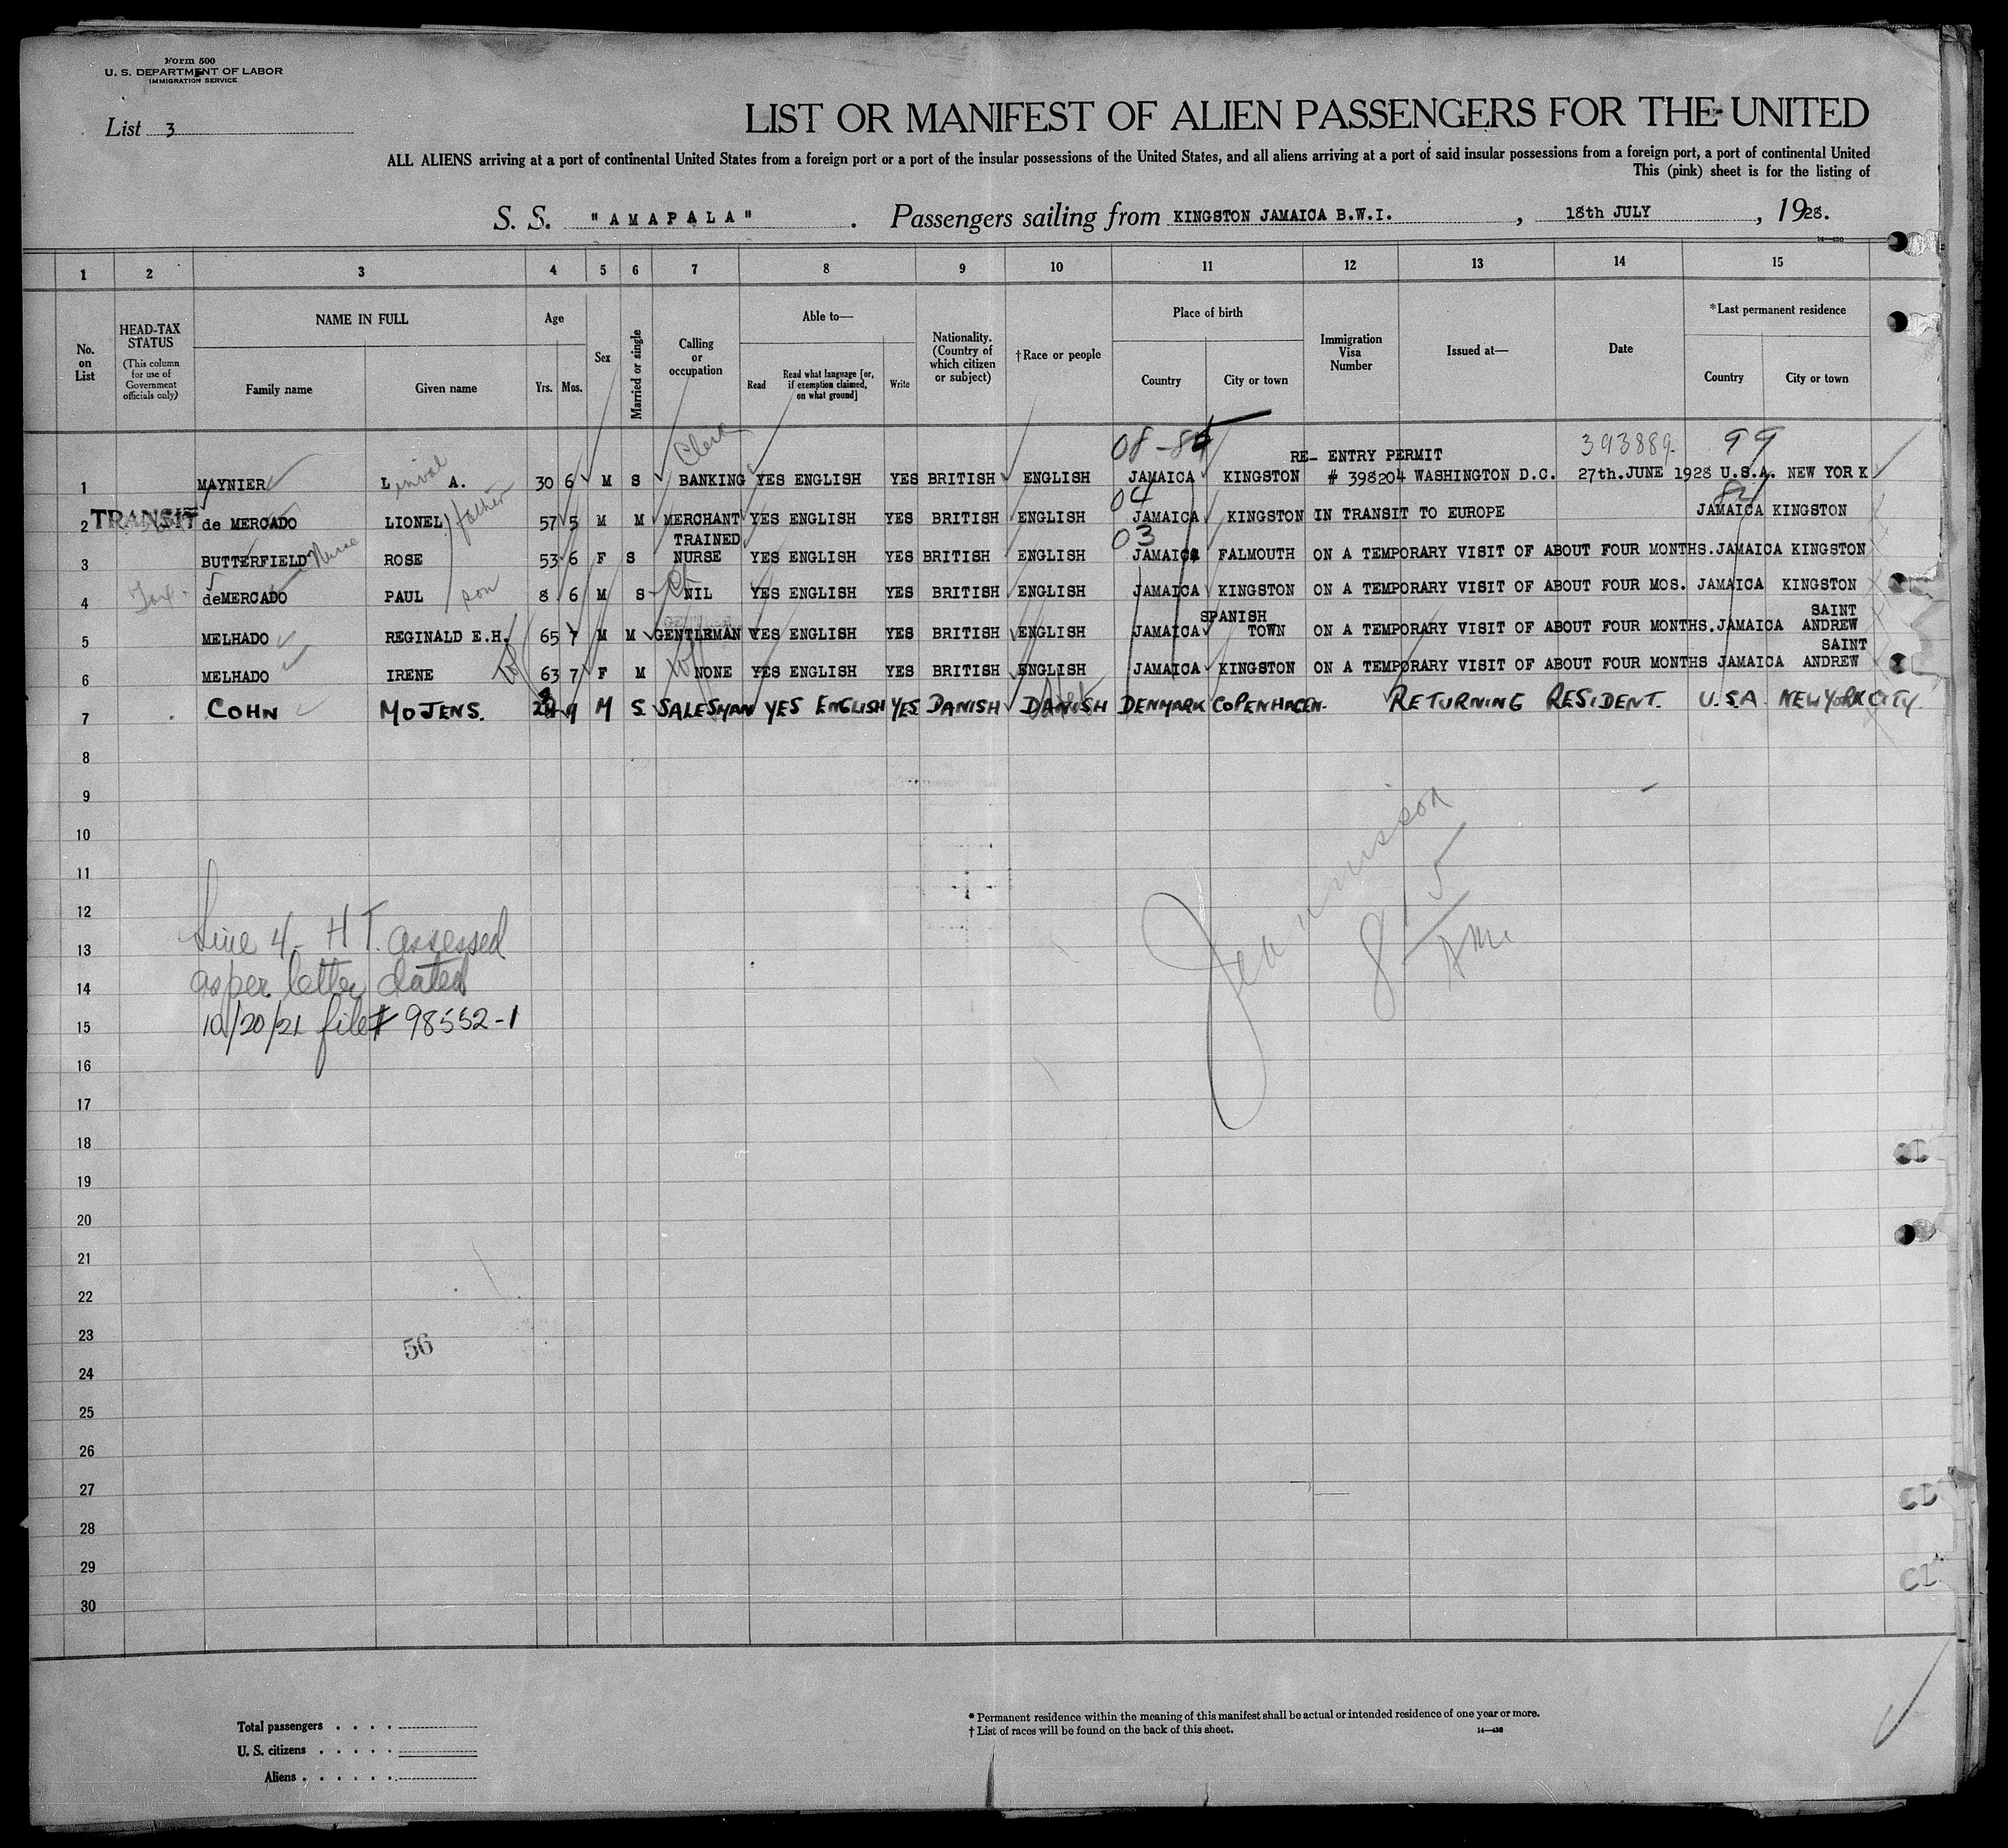 Form 500
U. S. DEPARTMENT OF LABOR
IMMIGRATION SERVICE
List 3
LIST OR MANIFEST OF ALIEN PASSENGERS FOR THE UNITED
ALL ALIENS arriving at a port of continental United States from a foreign port or a port of the insular possessions of the United States, and all aliens arriving at a port of said insular possessions from a foreign port, a port of continental United
This (pink) sheet is for the listing of
S. S. "AMAPALA". Passengers sailing from KINGSTON JAMAICA B.W.I., 18th JULY, 1928.
14—430
1 2 3 4 5 6 7 8 9 10 11 12 13 14 15
No. on List
HEAD-TAX STATUS (This column for use of Government officials only)
NAME IN FULL
Family name
Given name
Age
Yrs. Mos.
Sex
Married or single
Calling or occupation
Able to—
Read
Read what language [or, if exemption claimed, on what ground]
Write
Nationality. (Country of which citizen or subject)
†Race or people
Place of birth
Country
City or town
Immigration Visa Number
Issued at—
Date
*Last permanent residence
Country
City or town
Clerk 08-8 393889. 99
RE- ENTRY PERMIT
1 MAYNIER L A. 30 6 M S BANKING YES ENGLISH YES BRITISH ENGLISH JAMAICA KINGSTON # 398204 WASHINGTON D.C. 27th.JUNE 1928 U.S.A. NEW YORK
04
2 TRANSIT de MERCADO LIONEL father 57 5 M M MERCHANT YES ENGLISH YES BRITISH ENGLISH JAMAICA KINGSTON IN TRANSIT TO EUROPE JAMAICA KINGSTON
TRAINED 03
3 BUTTERFIELD Nurse ROSE 53 6 F S NURSE YES ENGLISH YES BRITISH ENGLISH JAMAICA FALMOUTH ON A TEMPORARY VISIT OF ABOUT FOUR MONTHS. JAMAICA KINGSTON
4 deMERCADO PAUL son 8 6 M S NIL YES ENGLISH YES BRITISH ENGLISH JAMAICA KINGSTON ON A TEMPORARY VISIT OF ABOUT FOUR MOS. JAMAICA KINGSTON
SPANISH SAINT
5 MELHADO REGINALD E.H. 65 7 M M GENTLEMAN YES ENGLISH YES BRITISH ENGLISH JAMAICA TOWN ON A TEMPORARY VISIT OF ABOUT FOUR MONTHS. JAMAICA ANDREW
SAINT
6 MELHADO IRENE 63 7 F M NONE YES ENGLISH YES BRITISH ENGLISH JAMAICA KINGSTON ON A TEMPORARY VISIT OF ABOUT FOUR MONTHS JAMAICA ANDREW
7 COHN MOJENS. 9 M S SALESMAN YES ENGLISH YES DANISH DANISH DENMARK COPENHAGEN. RETURNING RESIDENT. U.S.A. NEW YORK CITY.
8
9
10
11
12
13
14
15
16
17
18
19
20
21
22
23
24
25
26
27
28
29
30
Line 4- H T. assessed
as per letter dated
10/20/21 file # 98552-1
56
Total passengers
U. S. citizens
Aliens
* Permanent residence within the meaning of this manifest shall be actual or intended residence of one year or more.
† List of races will be found on the back of this sheet. 14—430